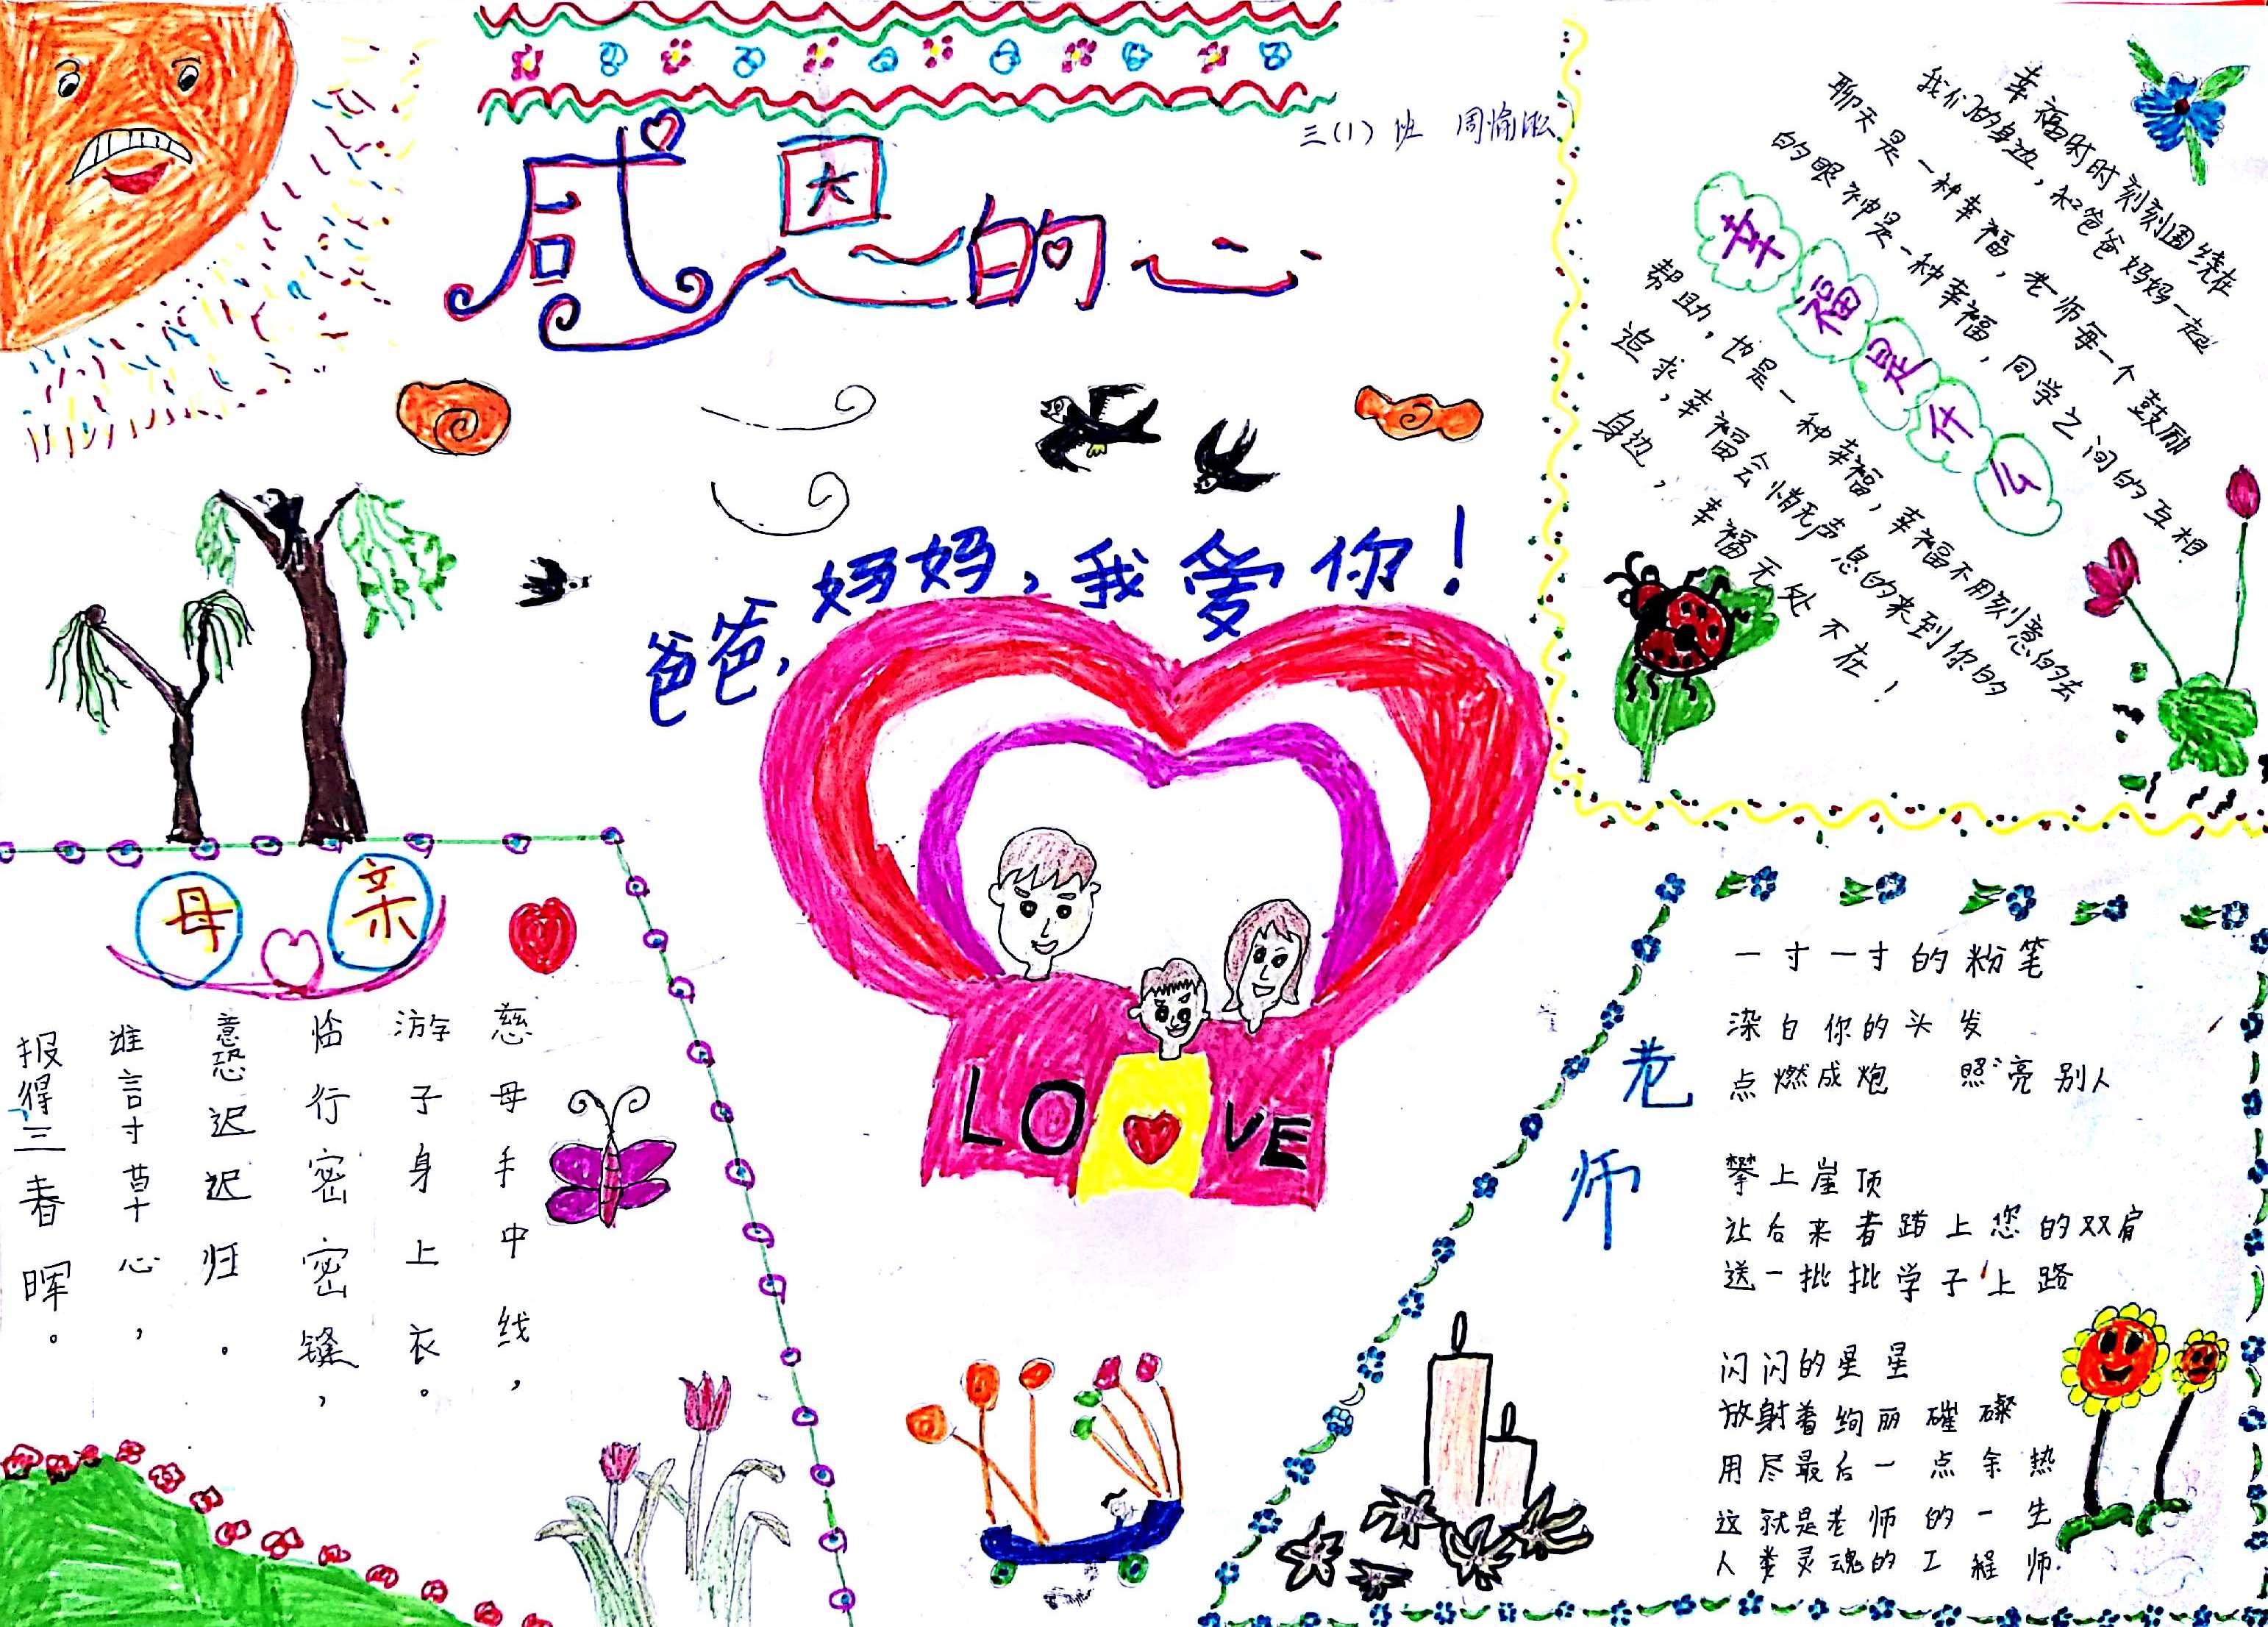 感恩的心
三（1）班 周愉
幸福时时刻刻围绕在
我们的身边，和爸爸妈妈一起
聊天是一种幸福，老师每一个鼓励
的眼神是一种幸福，同学之间的互相
幸福是什么
帮助，也是一种幸福，幸福不用刻意的去
追求，幸福会悄无声息的来到你的
身边，幸福无处不在！
爸爸，妈妈，我爱你！
LOVE
母亲
慈母手中线，
游子身上衣。
临行密密鏠，
意恐迟迟归。
谁言寸草心，
报得三春晖。
老师
一寸一寸的粉笔
染白你的头发
点燃成炮 照亮别人
攀上崖顶
让后来者踏上您的双肩
送一批批学子上路
闪闪的星星
放射着绚丽璀璨
用尽最后一点余热
这就是老师的一生
人类灵魂的工程师.